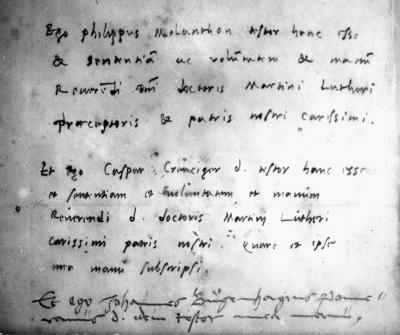 Ego philippus Melanthon testor hanc esse
& sententiā ac volūtatem & manū
Reverēdi dni doctoris Martini Lutheri
præceptoris & patris nostri carissimi.
Et ego Caspar Creuciger d. testor hanc esse
et sententiam et voluntatem et manum
Reverendi d. doctoris Martini Lutheri
carissimi patris nostri. Quare et ipse
mea manu subscripsi.
Et ego Johannes Bugenhagius Pome-
ranus d. idem testor mea manu.